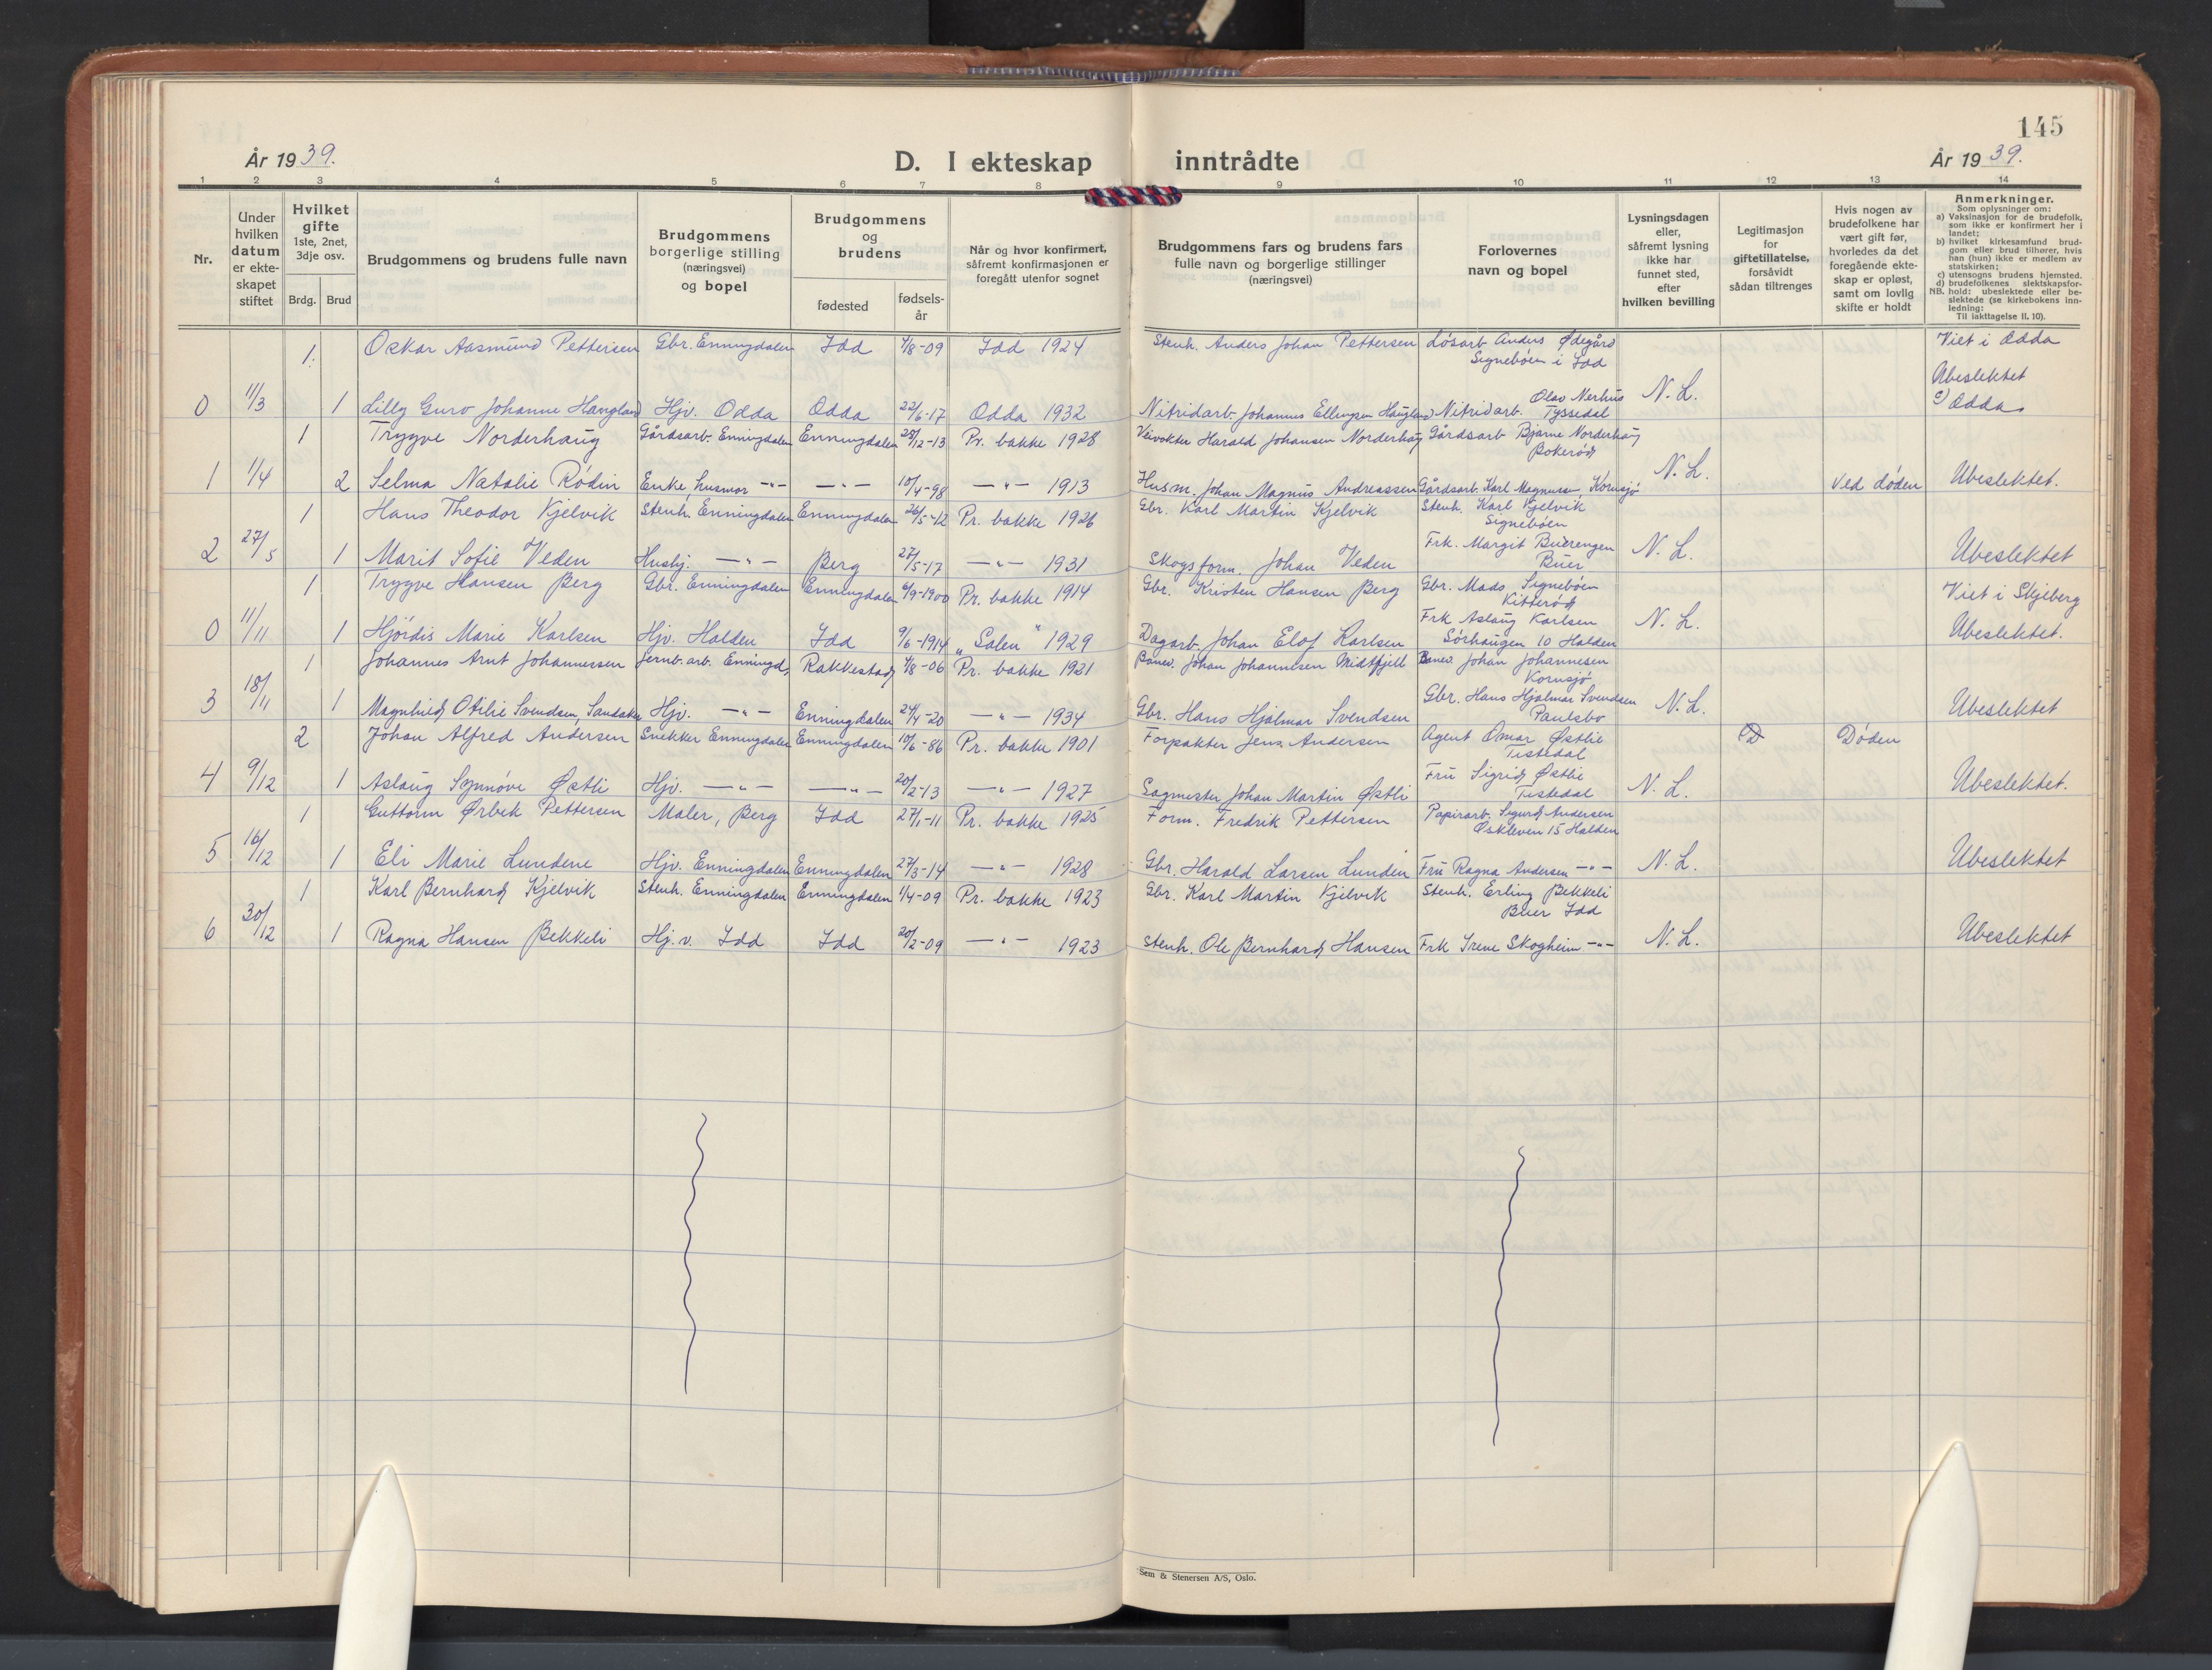 145
År 1939.
D. I ekteskap inntrådte
År 1939.
1 2 3 4 5 6 7 8 9 10 11 12 13 14
Nr.
Under hvilken datum er ekteskapet stiftet
Hvilket gifte 1ste, 2net, 3dje osv.
Brdg. Brud
Brudgommens og brudens fulle navn
Brudgommens borgerlige stilling (næringsvei) og bopel
Brudgommens og brudens
fødested
fødsels-år
Når og hvor konfirmert, såfremt konfirmasjonen er foregått utenfor sognet
Brudgommens fars og brudens fars fulle navn og borgerlige stillinger (næringsvei)
Forlovernes navn og bopel
Lysningsdagen eller, såfremt lysning ikke har funnet sted, efter hvilken bevilling
Legitimasjon for giftetillatelse, forsåvidt sådan tiltrenges
Hvis nogen av brudefolkene har vært gift før, hvorledes da det foregående ekteskap er opløst, samt om lovlig skifte er holdt
Anmerkninger.
Som oplysninger om:
a) Vaksinasjon for de brudefolk, som ikke er konfirmert her i landet;
b) hvilket kirkesamfund brudgom eller brud tilhører, hvis han (hun) ikke er medlem av statskirken;
c) utensogns brudens hjemsted.
d) brudefolkenes slektskapsforhold: ubeslektede eller beslektede (se kirkebokens innledning:
NB.
Til iakttagelse II. 10).
1. Oskar Aasmund Pettersen Gbr. Enningdalen Idd 4/8-09 Idd 1924 Stenh. Anders Johan Pettersen Løsarb Anders Ødegård Signebøen i Idd Viet i Odda
0 11/3 1 Lilly Guro Johanne Haugland Hjv. Odda Odda 22/6-17 Odda 1932 Nitridarb. Johannes Ellingsen Haugland Nitridarb. Olav Nerhus Tyssedal N. L. Ubeslektet c) Odda
1 Trygve Norderhaug Gårdsarb. Enningdalen Enningdalen 28/12-13 Pr. bakke 1928 Veivokter Harald Johansen Norderhaug Gårdsarb Bjarne Norderhaug Bokerød
1 1/4 2 Selma Natalie Rødin Enke, husmor -"- -"- 10/4-98 -"- 1913 Husm. Johan Magnus Andreassen Gårdsarb. Karl Magnusen Kornsjø N. L. Ved døden Ubeslektet.
1 Hans Theodor Kjelvik Stenh. Enningdalen Enningdalen 26/5-12 Pr. bakke 1926 Gbr. Karl Martin Kjelvik Stenh. Karl Kjelvik Signebøen
2 27/5 1 Marit Sofie Veden Hushj. -"- Berg 27/5-17 -"- 1931 Skogsform. Johan Veden Frk. Margit Buerengen Buer N. L. Ubeslektet
1 Trygve Hansen Berg Gbr. Enningdalen Enningdalen 6/9-1900 Pr. bakke 1914 Gbr. Kristen Hansen Berg Gbr. Mads Signebøen Kitterød Viet i Skjeberg
0 11/11 1 Hjørdis Marie Karlsen Hjv. Halden Idd 9/6-1914 "Salen" 1929 Dagarb. Johan Elof Karlsen Frk Aslaug Karlsen Sørhaugen 10 Halden N. L. Ubeslektet.
1 Johannes Arnt Johannessen Jernb. arb. Enningd. Rakkestad 4/8-06 Pr. bakke 1921 Banev. Johan Johannesen Midtfjell Banev. Johan Johannesen Kornsjø
3 18/11 1 Magnhild Otilie Svendsen, Sandaker Hjv. -"- Enningdalen 24/4-20 -"- 1934 Gbr. Hans Hjalmar Svendsen Gbr. Hans Hjalmar Svendsen Paulsbo N. L. Ubeslektet
2 Johan Alfred Andersen Snekker Enningdalen Enningdalen 10/6-86 Pr. bakke 1901 Forpakter Jens Andersen Agent Omar Østlie Tistedal D Døden
4 9/12 1 Aslaug Synnøve Østli Hjv. -"- -"- 20/2-13 -"- 1927 Sagmester Johan Martin Østli Fru Sigrid Østlie Tistedal N. L. Ubeslektet.
1 Guttorm Ørbek Pettersen Maler, Berg Idd 27/1-11 Pr. bakke 1925 Form. Fredrik Pettersen Papirarb. Sigurd Andersen Oskleven 15 Halden
5 16/12 1 Eli Marie Lundene Hjv. Enningdalen Enningdalen 27/3-14 -"- 1928 Gbr. Harald Larsen Lunden Fru Ragna Andersen -"- N. L. Ubeslektet
1 Karl Bernhard Kjelvik Stenh. Enningdalen Enningdalen 1/4-09 Pr. bakke 1923 Gbr. Karl Martin Kjelvik Stenh. Erling Bekkeli Buer Idd
6 30/12 1 Ragna Hansen Bekkeli Hj. v. Idd Idd 20/2-09 -"- 1923 Stenh. Ole Bernhard Hansen Frk Irene Skogheim -"- N. L. Ubeslektet
Sem & Stenersen A/S, Oslo.